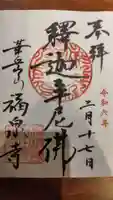 奉拝
令和六年
二月十七日
釋迦牟尼佛
華岳山
福泉寺